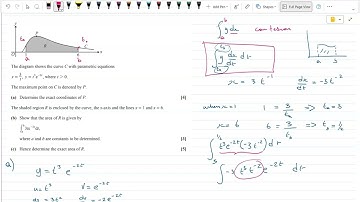 The diagram shows the curve C with parametric equations
x = 3/t, y = t³e^(-2t), where t > 0.
The maximum point on C is denoted by P.
(a) Determine the exact coordinates of P. [4]
The shaded region R is enclosed by the curve, the x-axis and the lines x = 1 and x = 6.
(b) Show that the area of R is given by
where a and b are constants to be determined. [3]
(c) Hence determine the exact area of R. [5]
a) y = t³ e^(-2t)
u = t³ v = e^(-2t)
∫ y dx cartesian
∫ y dx/dt dt
x = 3 t⁻¹ dx/dt = -3 t⁻²
when x = 1 1 = 3/t ⇒ t = 3
x = 6 6 = 3/t ⇒ t = ½
∫ t³e^(-2t)(-3t⁻²) dt
∫ -3 t³ t⁻² e^(-2t) dt